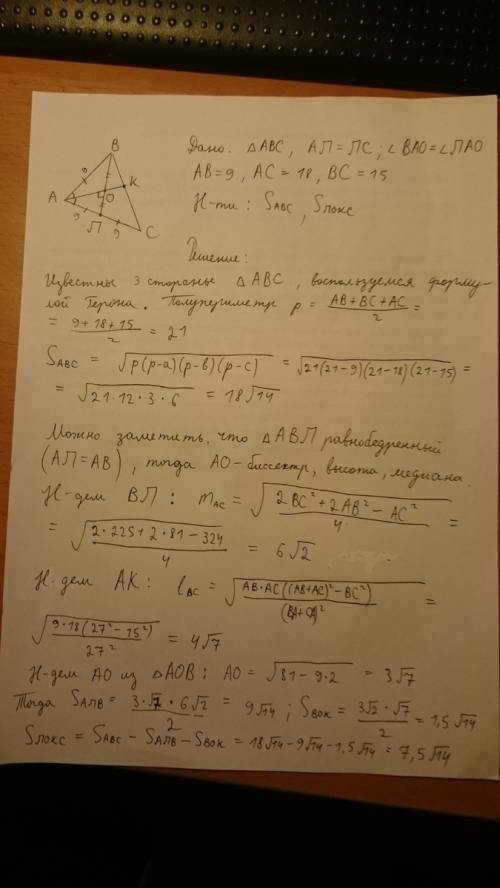 B
K
A
O
П
C
9
9
9
Дано: △ABC, АП = ПС; ∠BAO = ∠ПАО
AB = 9, AC = 18, BC = 15
Н-ти: S_ABC, S_ПОКС
Решение:
Известны 3 стороны △ABC, воспользуемся форму-
лой Герона. Полупериметр p = (AB + BC + AC)/2 =
= (9 + 18 + 15)/2 = 21
S_ABC = √(p(p-a)(p-b)(p-c)) = √(21(21-9)(21-18)(21-15)) =
= √(21·12·3·6) = 18√14
Можно заметить, что △АВП равнобедренный
(АП = АВ), тогда АО - биссектр, высота, медиана.
Н-дем ВП: m_AC = √((2BC² + 2AB² - AC²)/4) =
= √((2·225 + 2·81 - 324)/4) = 6√2
Н-дем АК: l_BC = √((AB·AC((AB+AC)²-BC²))/(BA+CA)²) =
√((9·18(27²-15²))/27²) = 4√7
Н-дем АО из △AOB: AO = √(81 - 9·2) = 3√7
Тогда S_АПВ = (3·√7·6√2)/2 = 9√14; S_ВОК = (3√2·√7)/2 = 1,5√14
S_ПОКС = S_ABC - S_АПВ - S_ВОК = 18√14 - 9√14 - 1,5√14 = 7,5√14